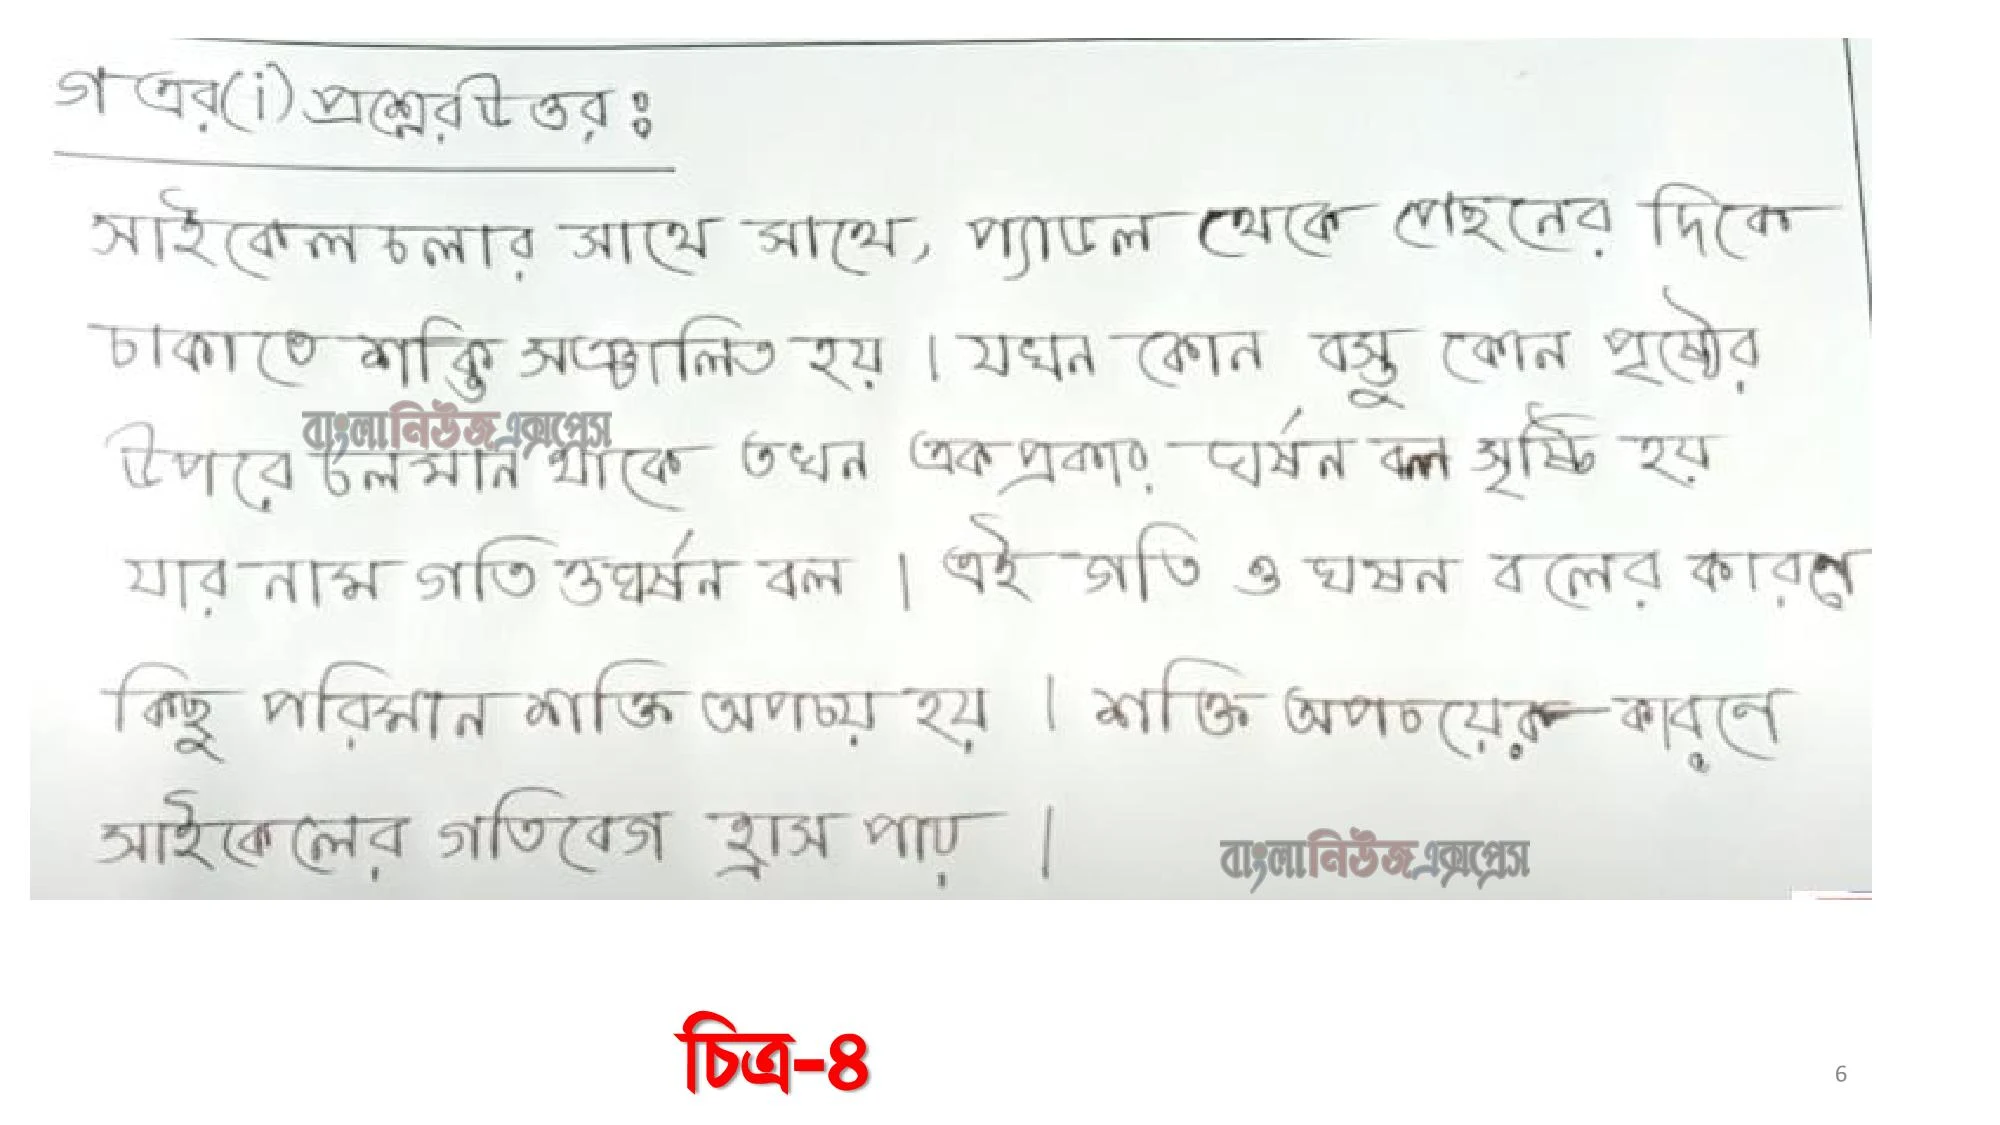 গ এর(i) প্রশ্নের উত্তর ঃ
সাইকেল চলার সাথে সাথে, প্যাডল থেকে পেছনের দিকে
চাকাতে শক্তি সঞ্চালিত হয় । যখন কোন বস্তু কোন পৃষ্ঠের
বাংলানিউজএক্সপ্রেস
উপরে চলমান থাকে তখন একপ্রকার ঘর্ষন বল সৃষ্টি হয়
যার নাম গতি ও ঘর্ষন বল । এই গতি ও ঘষন বলের কারণে
কিছু পরিমান শক্তি অপচয় হয় । শক্তি অপচয়ের কারণে
সাইকেলের গতিবেগ হ্রাস পায় ।
বাংলানিউজএক্সপ্রেস
চিত্র-৪
6